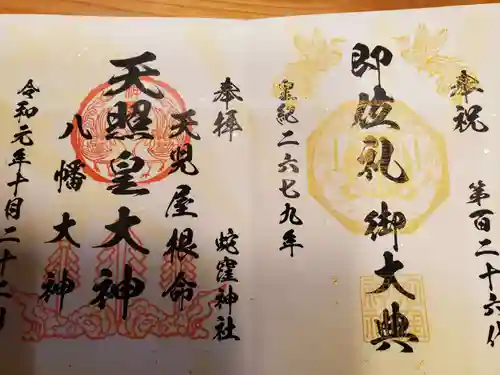 奉祝
第百二十六代
即位礼 御大典
皇紀二六七九年
奉拝
蛇窪神社
天児屋根命
天照皇大神
八幡大神
令和元年十月二十二